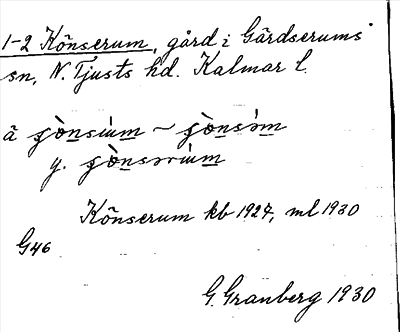 1-2 Könserum, gård i Gärdserums
sn, N. Tjusts hd. Kalmar l.
ä
y.
Könserum kb 1927, ml 1930
G46
G. Granberg 1930